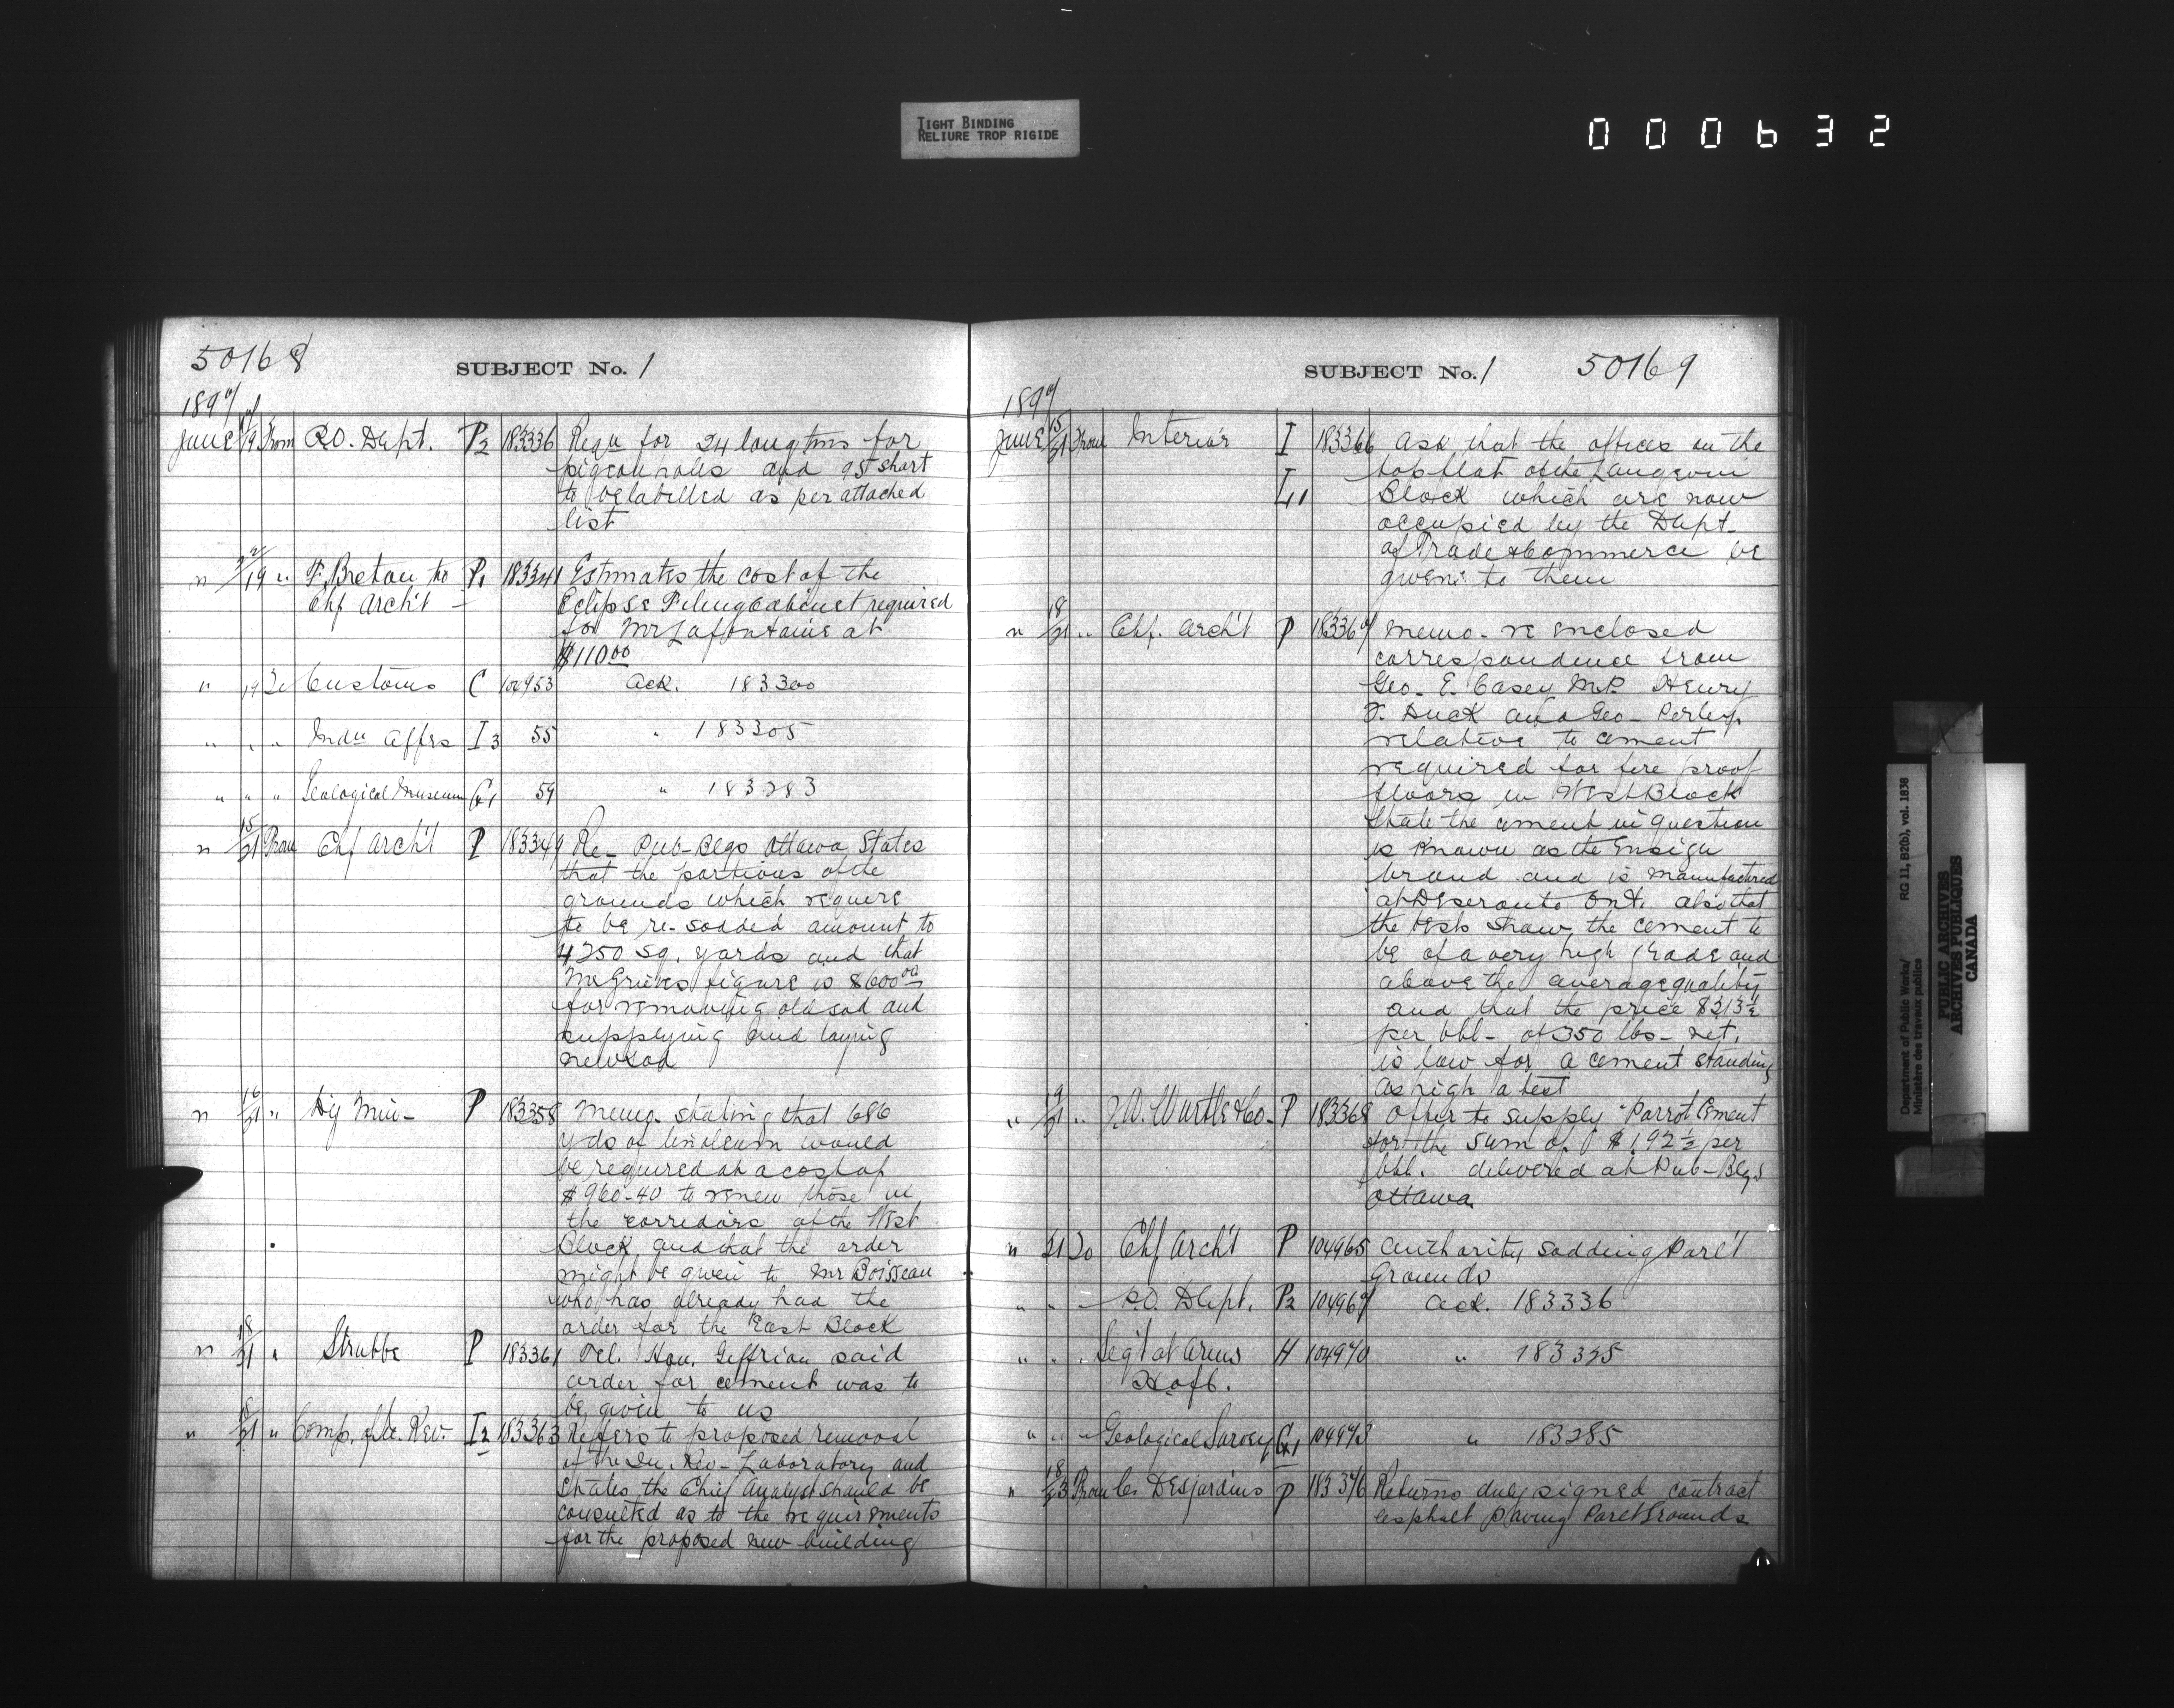 TIGHT BINDING
RELIURE TROP RIGIDE
000632
50168
SUBJECT No. 1
1897
June 17/19 From P.O. Dept. P2 183336 Requ for 24 long tins for
pigeon holes and 95 short
to be labelled as per attached
list
" 19 " F. Breton to P1 183341 Estimates the cost of the
Chf Arch't Eclipse Filing Cabinet required
for Mr Lafontaine at
$110.00
" 19 To Customs C 104953 Ack. 183300
" " " Indn Affrs I3 55 " 183305
" " " Geological Museum G1 59 " 183283
" 15/21 From Chf Arch't P 183349 Re- Pub-Blgs Ottawa States
that the portions of the
grounds which require
to be re-sodded amount to
4250 sq. yards and that
McGrieves figure is $600.00
for removing old sod and
supplying and laying
new sod
" 16/21 " Dy Min- P 183358 Memo. stating that 686
yds of linoleum would
be required at a cost of
$960-40 to renew those in
the corridors of the West
Block, and that the order
might be given to Mr Boisseau
who has already had the
order for the East Block
" 18/21 " Strubbe P 183361 Tel. Hon. Geffrion said
order for cement was to
be given to us
" 18/21 " Comp. of In. Rev. I2 183363 Refers to proposed removal
of the In. Rev- Laboratory and
states the Chief Analyst should be
consulted as to the requirements
for the proposed new building
SUBJECT No. 1 50169
1897
June 15/21 From Interior I 183366 Ask that the offices on the
top flat of the Langevin
L1 Block which are now
occupied by the Dept.
of Trade & Commerce be
given to them
" 18/21 " Chf. Arch't P 183367 Memo- re enclosed
correspondence from
Geo. E. Casey M.P. Henry
F. Duck and Geo- Perley
relative to cement
required for fire proof
floors in West Block
State the cement in question
is known as the Ensign
brand and is manufactured
at Deseronto Ont. also that
the tests show the cement to
be of a very high grade and
above the average quality
and that the price $2.13½
per bbl- of 350 lbs- net,
is low for a cement standing
as high a test
" 19/21 " Wurtle & Co. P 183368 Offer to supply "Parrot Cement
for the sum of $1,92½ per
bbl. delivered at Pub-Blgs
Ottawa
" 21 To Chf Arch't P 104965 Authority sodding Parl't
Grounds
" " " P.O. Dept. P2 104967 Ack. 183336
" " " Seg't at Arms H 104970 " 183325
H of C.
" " " Geological Survey G1 104973 " 183285
" 18/23 From Desjardins P 183376 Returns duly signed contract
asphalt paving Parlt Grounds
Department of Public Works/
Ministère des travaux publics
RG 11, B2(b), vol. 1838
PUBLIC ARCHIVES
ARCHIVES PUBLIQUES
CANADA